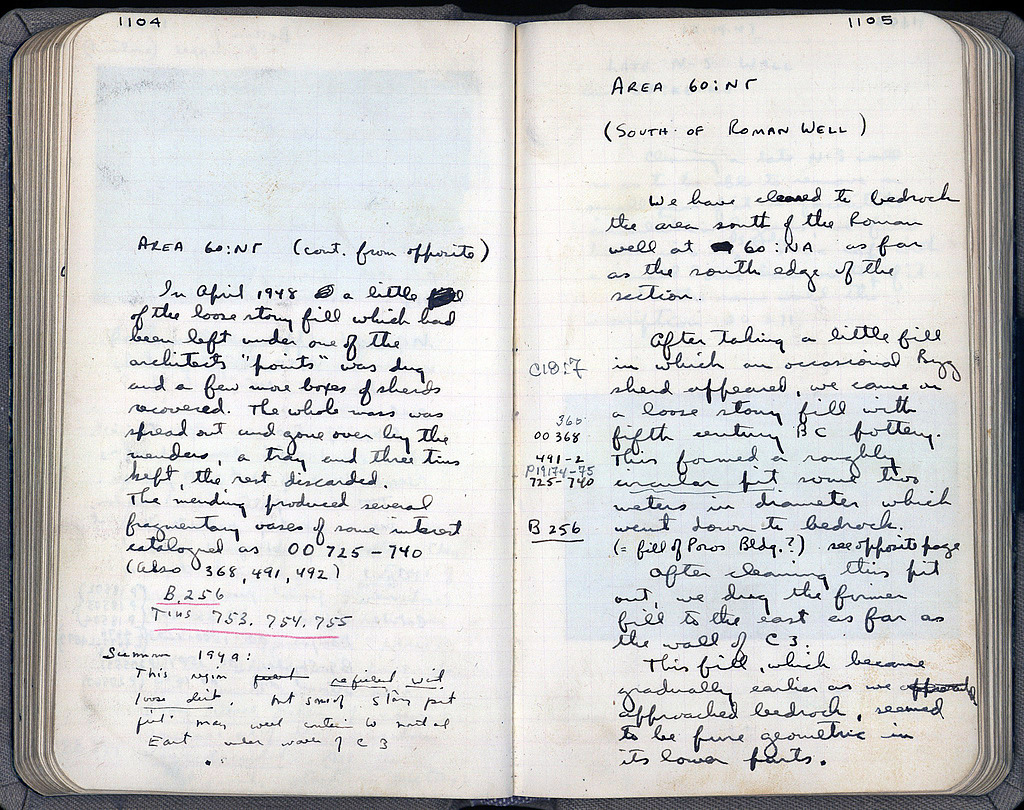 1104
AREA 60:NΓ (cont. from opposite)
In April 1948 a little
of the loose stony fill which had
been left under one of the
architects "points" was dug
and a few more boxes of sherds
recovered. The whole mass was
spread out and gone over by the
menders, a tray and three tins
kept, the rest discarded.
The mending produced several
fragmentary vases of some interest
catalogued as OO 725 – 740
(also 368, 491, 492)
B. 256
Tins 753. 754. 755
Summer 1949:
This region refilled with
loose dirt. But some of stony pit
fill may well continue to north
East under wall of C 3
1105
AREA 60:NΓ
(SOUTH OF ROMAN WELL)
We have cleared to bedrock
the area south of the Roman
well at 60:NA as far
as the south edge of the
section.
After taking a little fill
C18:7
in which an occasional Byz
sherd appeared, we came on
a loose stony fill with
366
OO 368
fifth century BC pottery.
491-2
This formed a roughly
P19174-75
725-740
circular pit some two
meters in diameter which
B 256
went down to bedrock.
(= fill of Poros Bldg.?) see opposite page
After cleaning this pit
out, we dug the former
fill to the east as far as
the wall of C 3.
This fill, which became
gradually earlier as we
approached bedrock, seemed
to be pure geometric in
its lower parts.